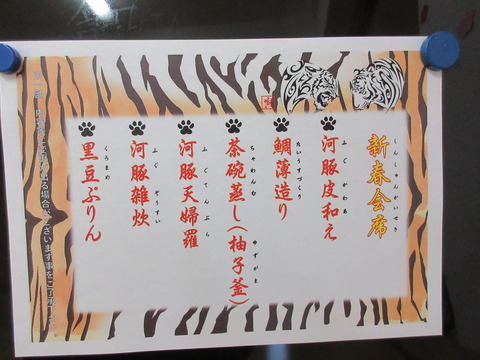 新春会席
しんしゅんかいせき
河豚皮和え
ふぐかわあ
鯛薄造り
たいうすづくり
茶碗蒸し(柚子釜)
ちゃわんむ ゆずがま
河豚天婦羅
ふぐてんぷら
河豚雑炊
ふぐぞうすい
黒豆ぷりん
くろまめ
場合がございます事をご了承